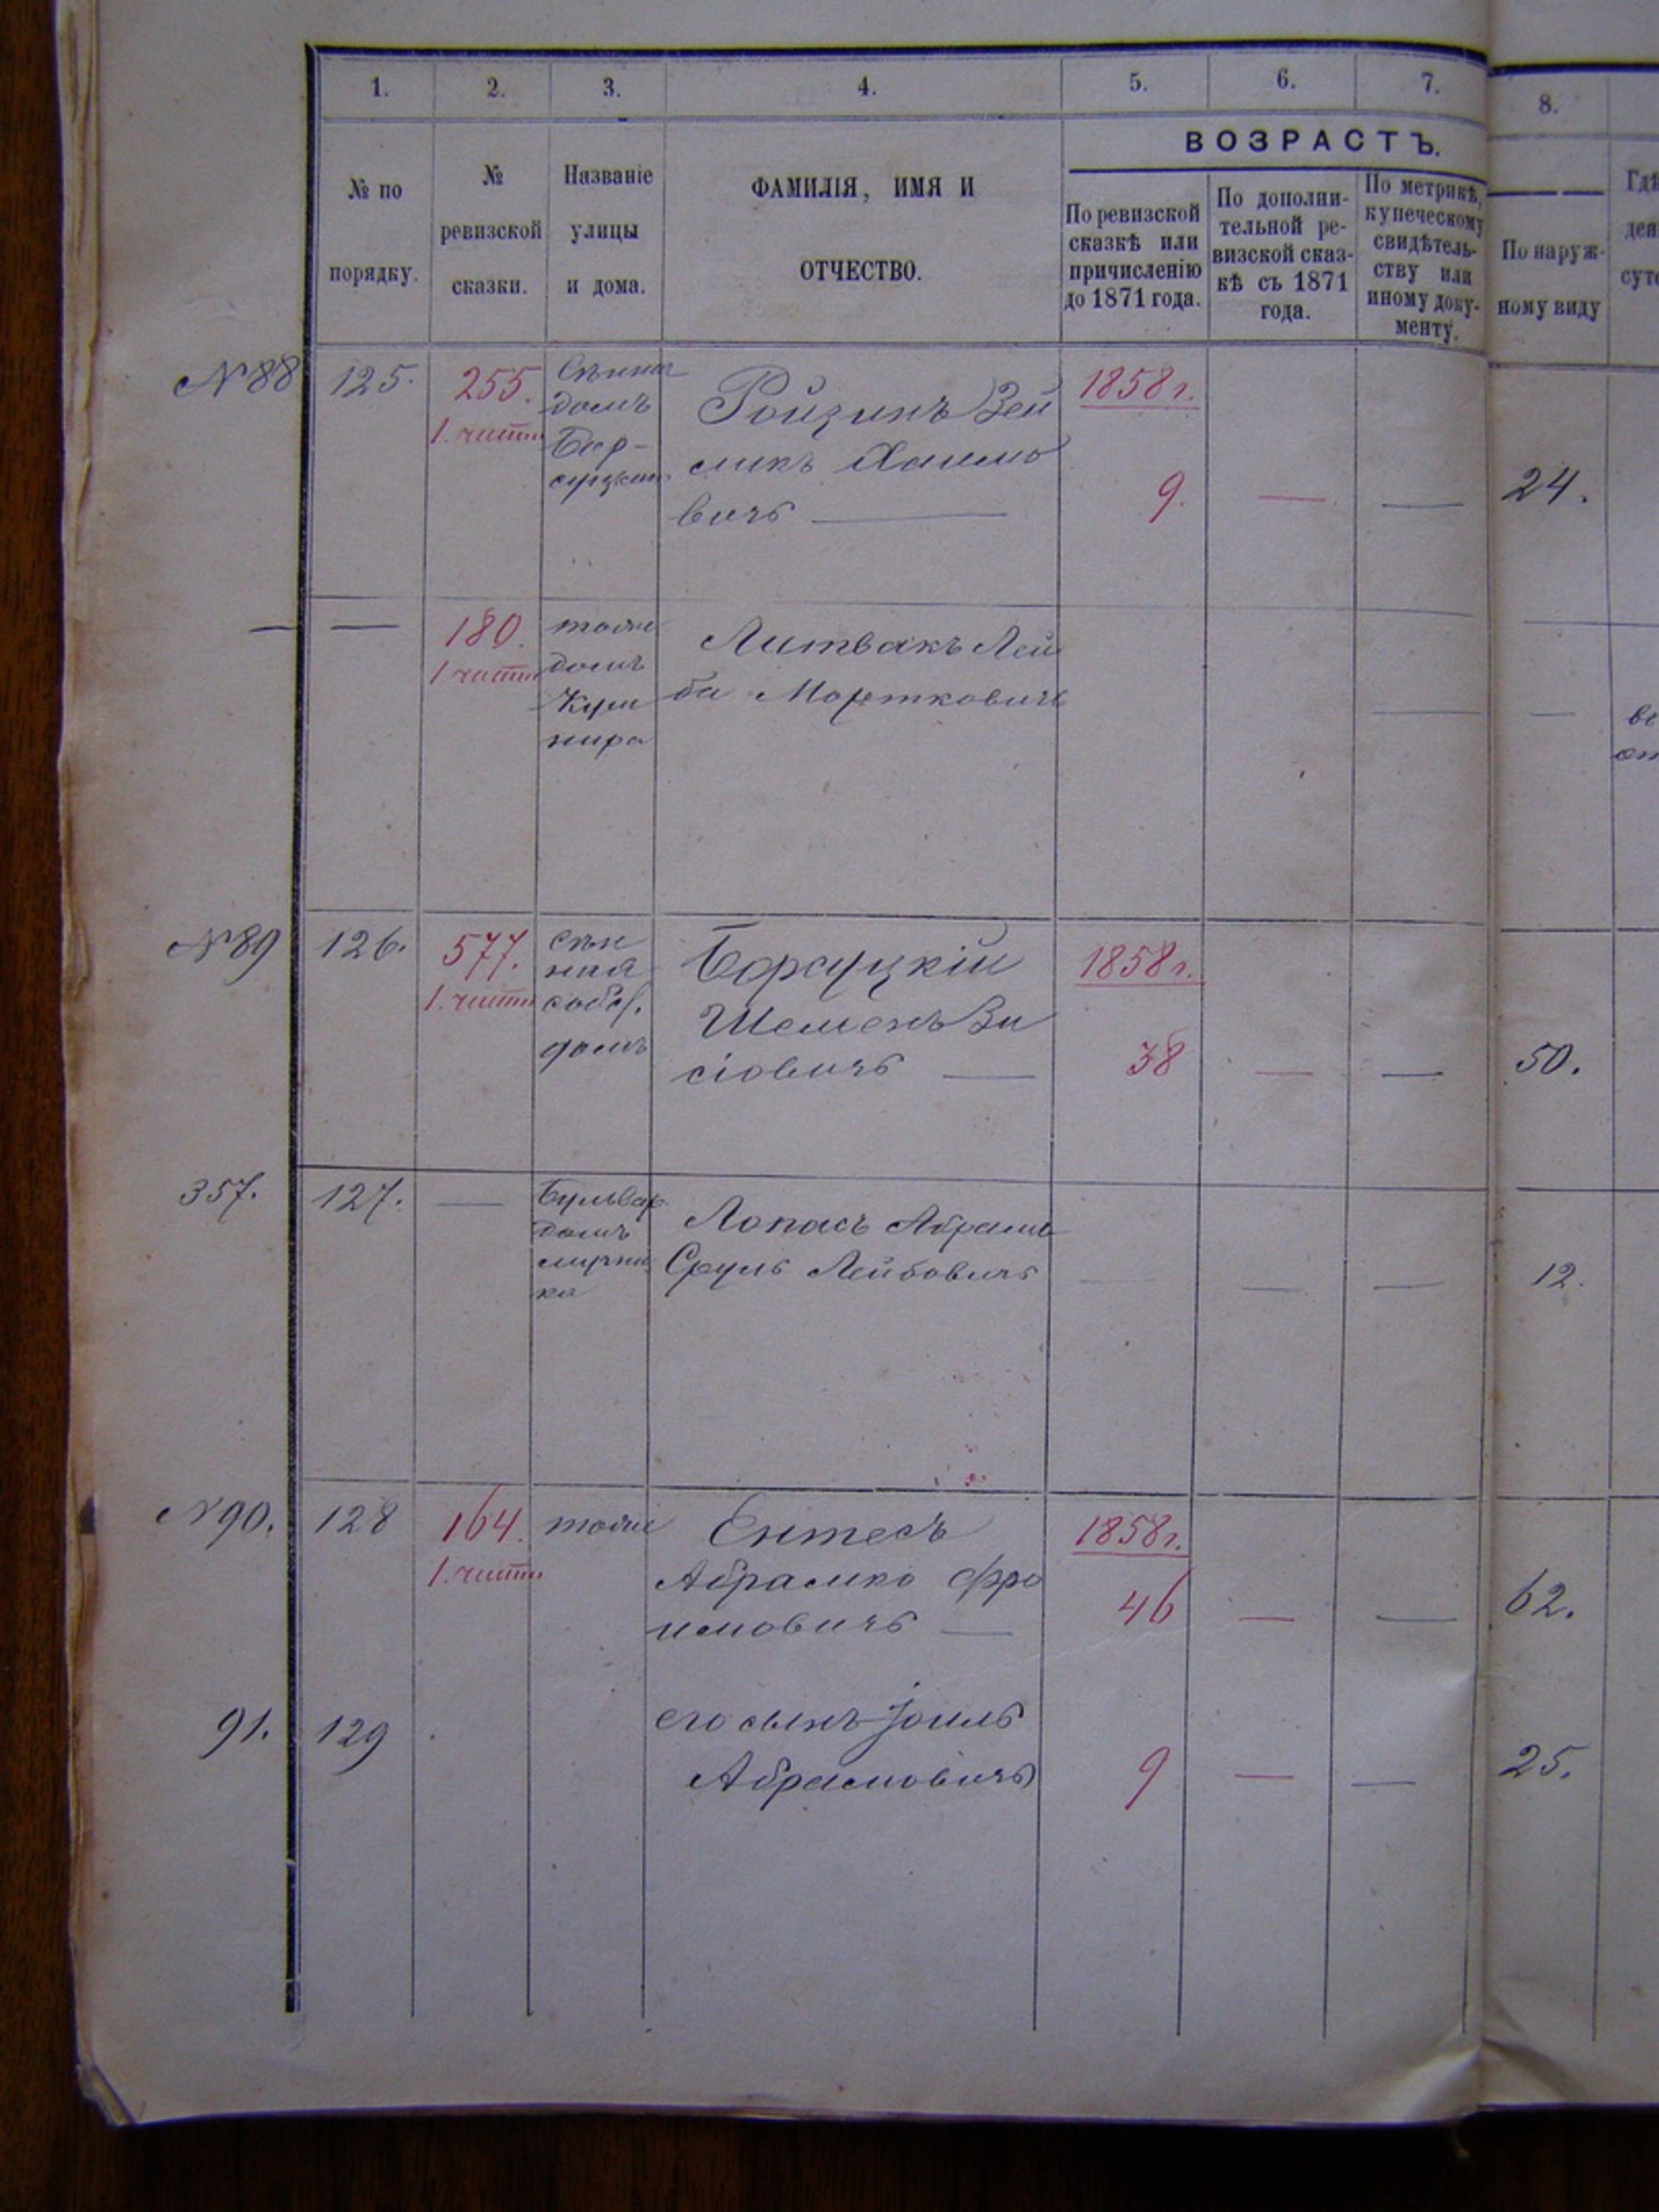 1. 2. 3. 4. 5. 6. 7. 8.
ВОЗРАСТЪ.
№ по
порядку.
№
ревизской
сказки.
Названіе
улицы
и дома.
ФАМИЛІЯ, ИМЯ И
ОТЧЕСТВО.
По ревизской
сказкѣ или
причисленію
до 1871 года.
По дополни-
тельной ре-
визской сказ-
кѣ съ 1871
года.
По метрикѣ,
купеческому
свидѣтель-
ству или
иному доку-
менту.
По наруж-
ному виду
Гдѣ
ден
сутс
№88 125. 255.
1. части
домъ
Ройзинъ Зей
ликъ Хаимо
вичъ —
1858 г.
9. — — 24.
— — 180.
1 части
тоже
домъ
Куш
нира
Литвакъ Лей
ба Мортковичъ
— —
№89 126. 577.
1. части
Сѣн
ная
собс.
домъ
Борсуцкій
Шеменъ Зи
сіовичъ —
1858 г.
38 — — 50.
357. 127. —
Бульвар
домъ
Лопасъ Абрамъ
Сруль Лейбовичъ
— — — 12.
№90. 128 164.
1. части
тоже
Ентесъ
Абрамко Фро
имовичъ —
1858 г.
46 — — 62.
91. 129
его сынъ Іоиль
Абрамовичъ
9 — — 25.